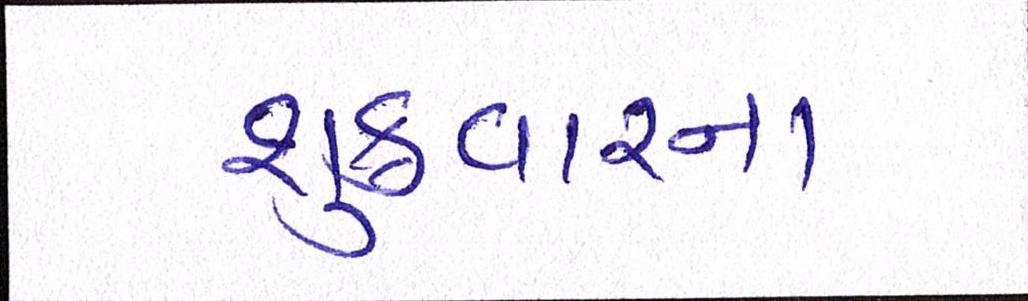 શુક્રવારના